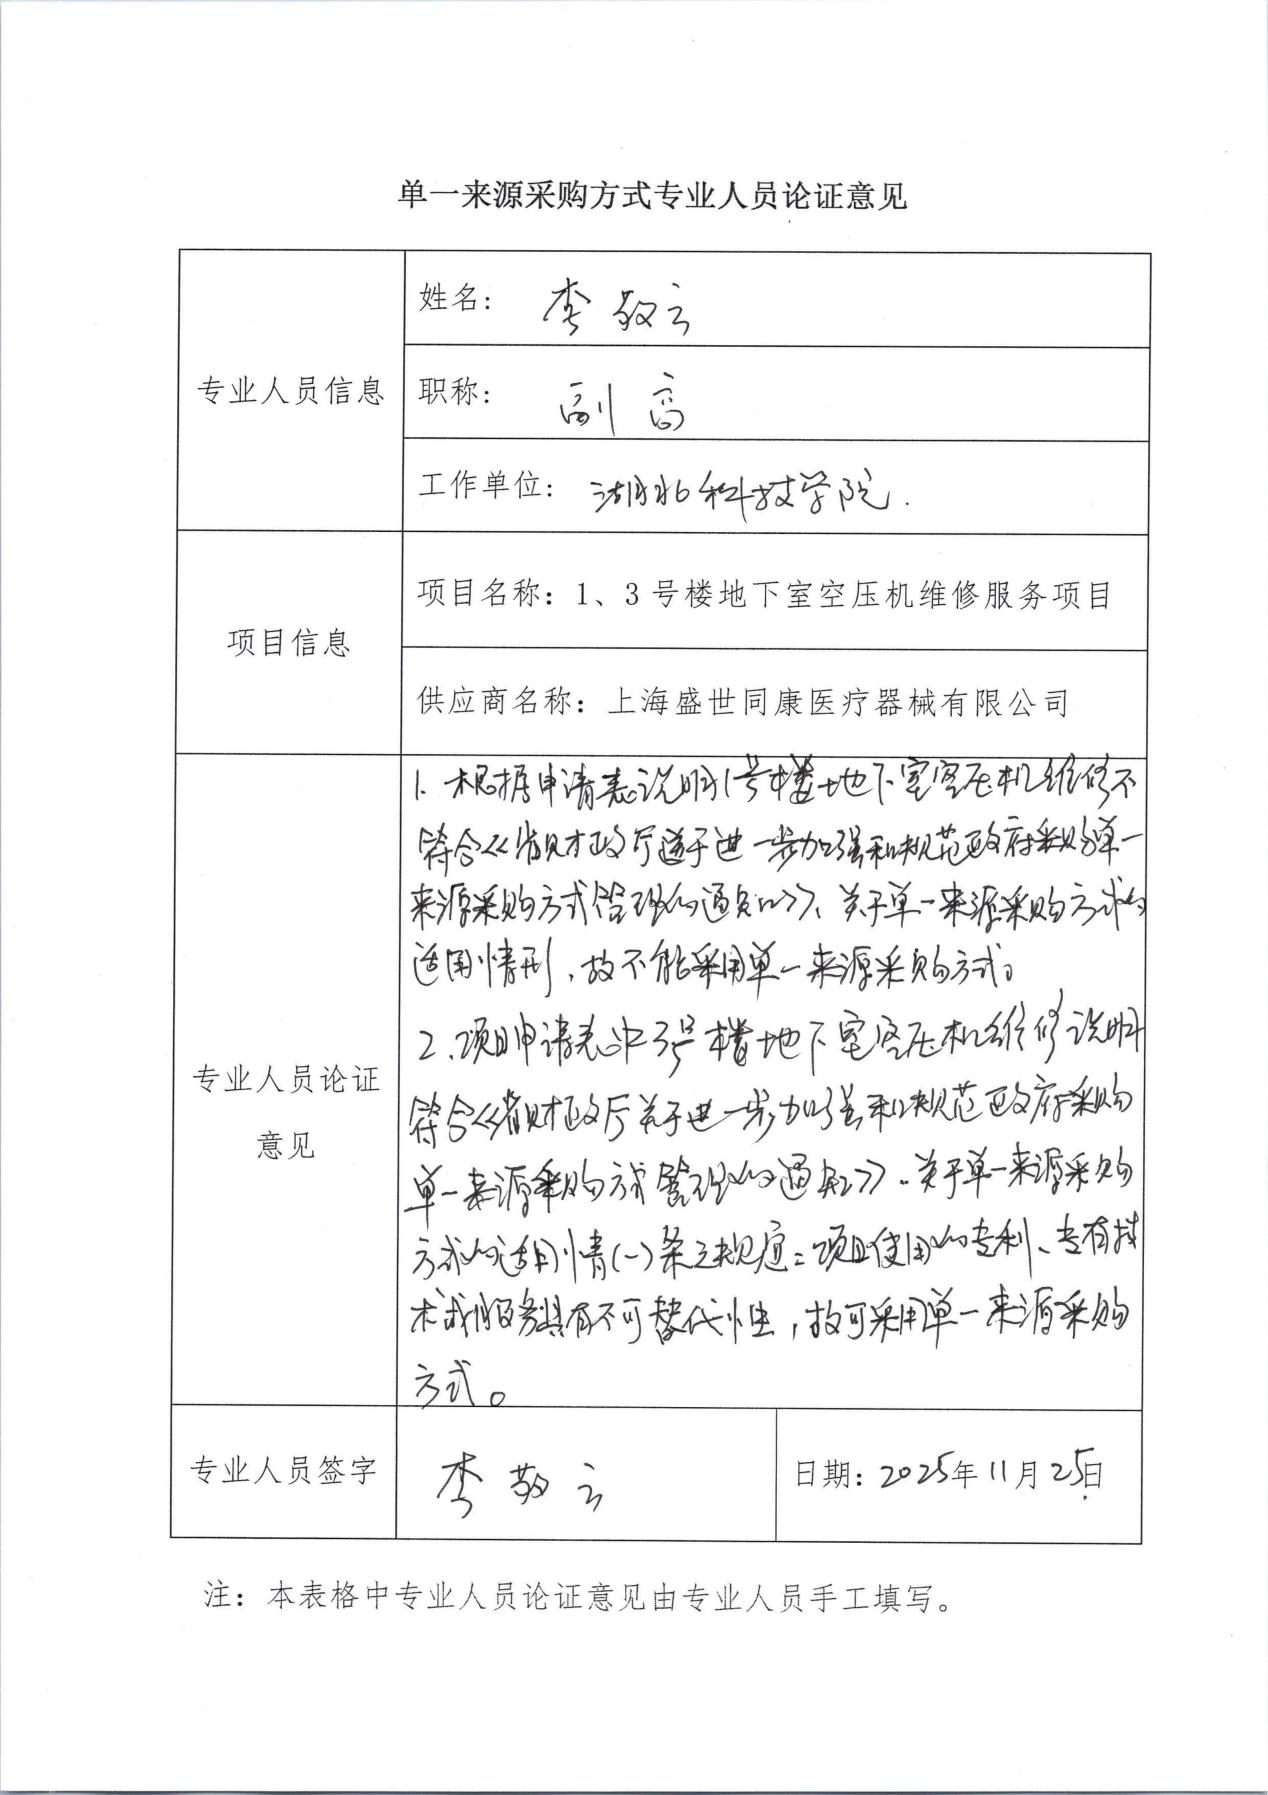 单一来源采购方式专业人员论证意见
专业人员信息
姓名: 李敬云
职称: 副高
工作单位: 湖北科技学院.
项目信息
项目名称: 1、3号楼地下室空压机维修服务项目
供应商名称: 上海盛世同康医疗器械有限公司
专业人员论证
意见
1. 根据申请表说明1号楼地下室空压机维修不
符合《省财政厅关于进一步加强和规范政府采购单一
来源采购方式管理的通知》、关于单一来源采购方式的
适用情形, 故不能采用单一来源采购方式。
2. 项目申请表中3号楼地下室空压机维修说明
符合《省财政厅关于进一步加强和规范政府采购
单一来源采购方式管理的通知》. 关于单一来源采购
方式的适用情(一)条之规定: 项目使用的专利、专有技
术或服务具有不可替代性, 故可采用单一来源采购
方式。
专业人员签字
李敬云
日期: 2025年11月25日
注: 本表格中专业人员论证意见由专业人员手工填写。